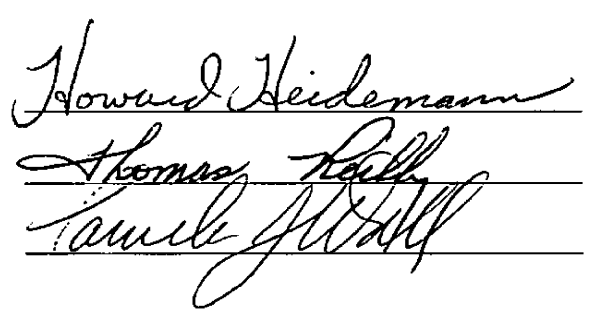 Howard Heidemann
Thomas Reilly
Pamela J